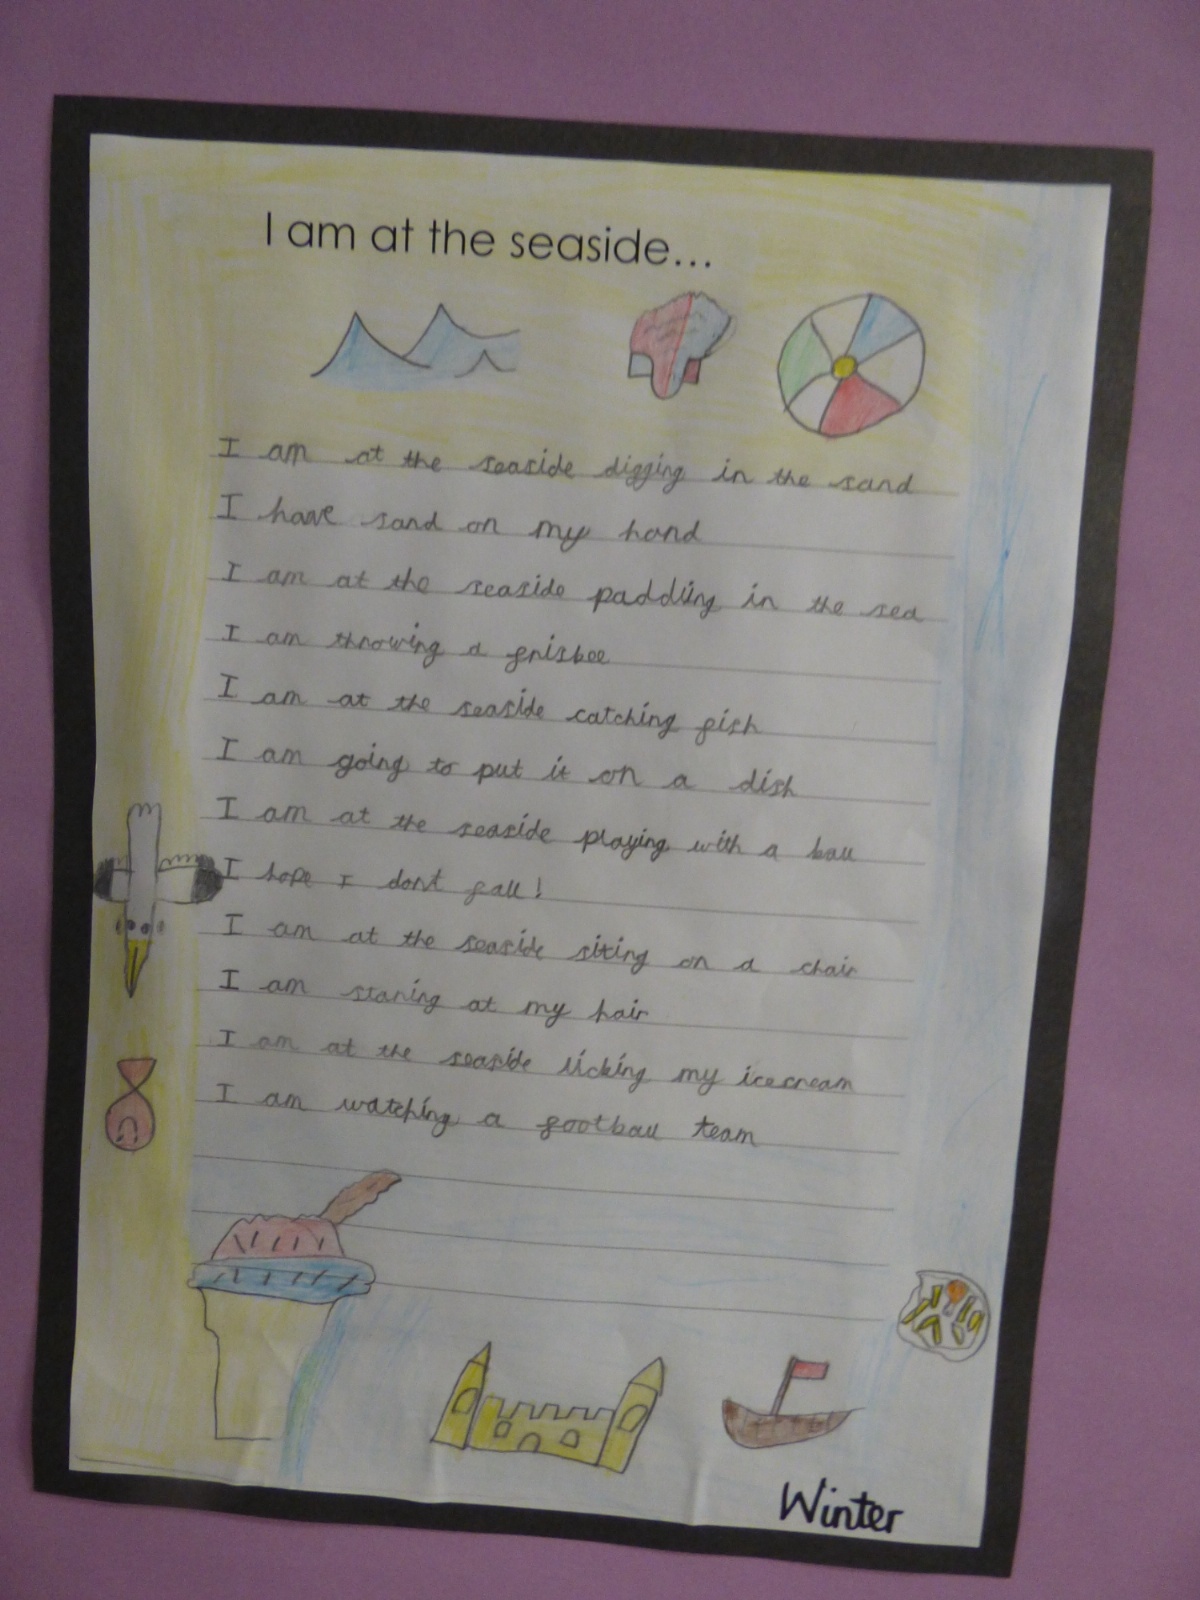 I am at the seaside...
I am at the seaside digging in the sand
I have sand on my hand
I am at the seaside paddling in the sea
I am throwing a frisbee
I am at the seaside catching fish
I am going to put it on a dish
I am at the seaside playing with a ball
I hope I dont fall!
I am at the seaside siting on a chair
I am staring at my hair
I am at the seaside licking my icecream
I am watching a football team
Winter